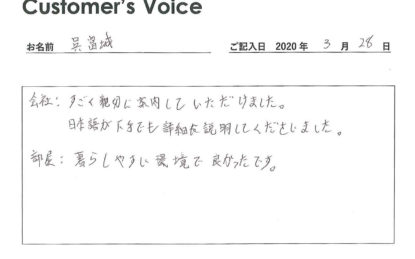 Customer's Voice
お名前 呉富城 ご記入日 2020 年 3 月 28 日
会社: すごく親切に案内していただけました。
日本語が下手でも詳細な説明してくださいました。
部屋: 暮らしやすい環境で良かったです。